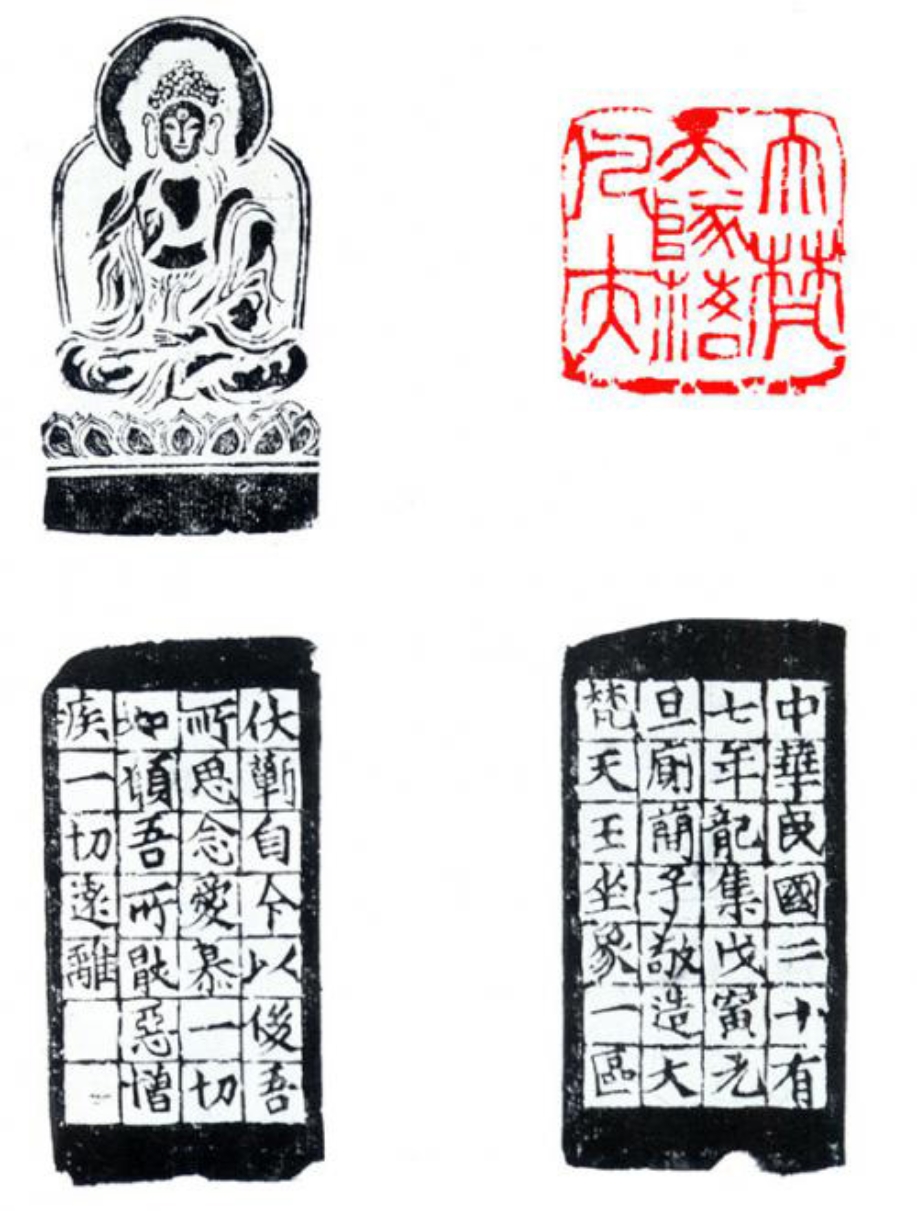 大梵
天隊落
凡夫
中華民國二十有
七年龍集戊寅元
旦廟簡子敬造大
梵天王坐象一區
伏蘄自今以後吾
所思念愛慕一切
如願吾所厭惡憎
疾一切遠離